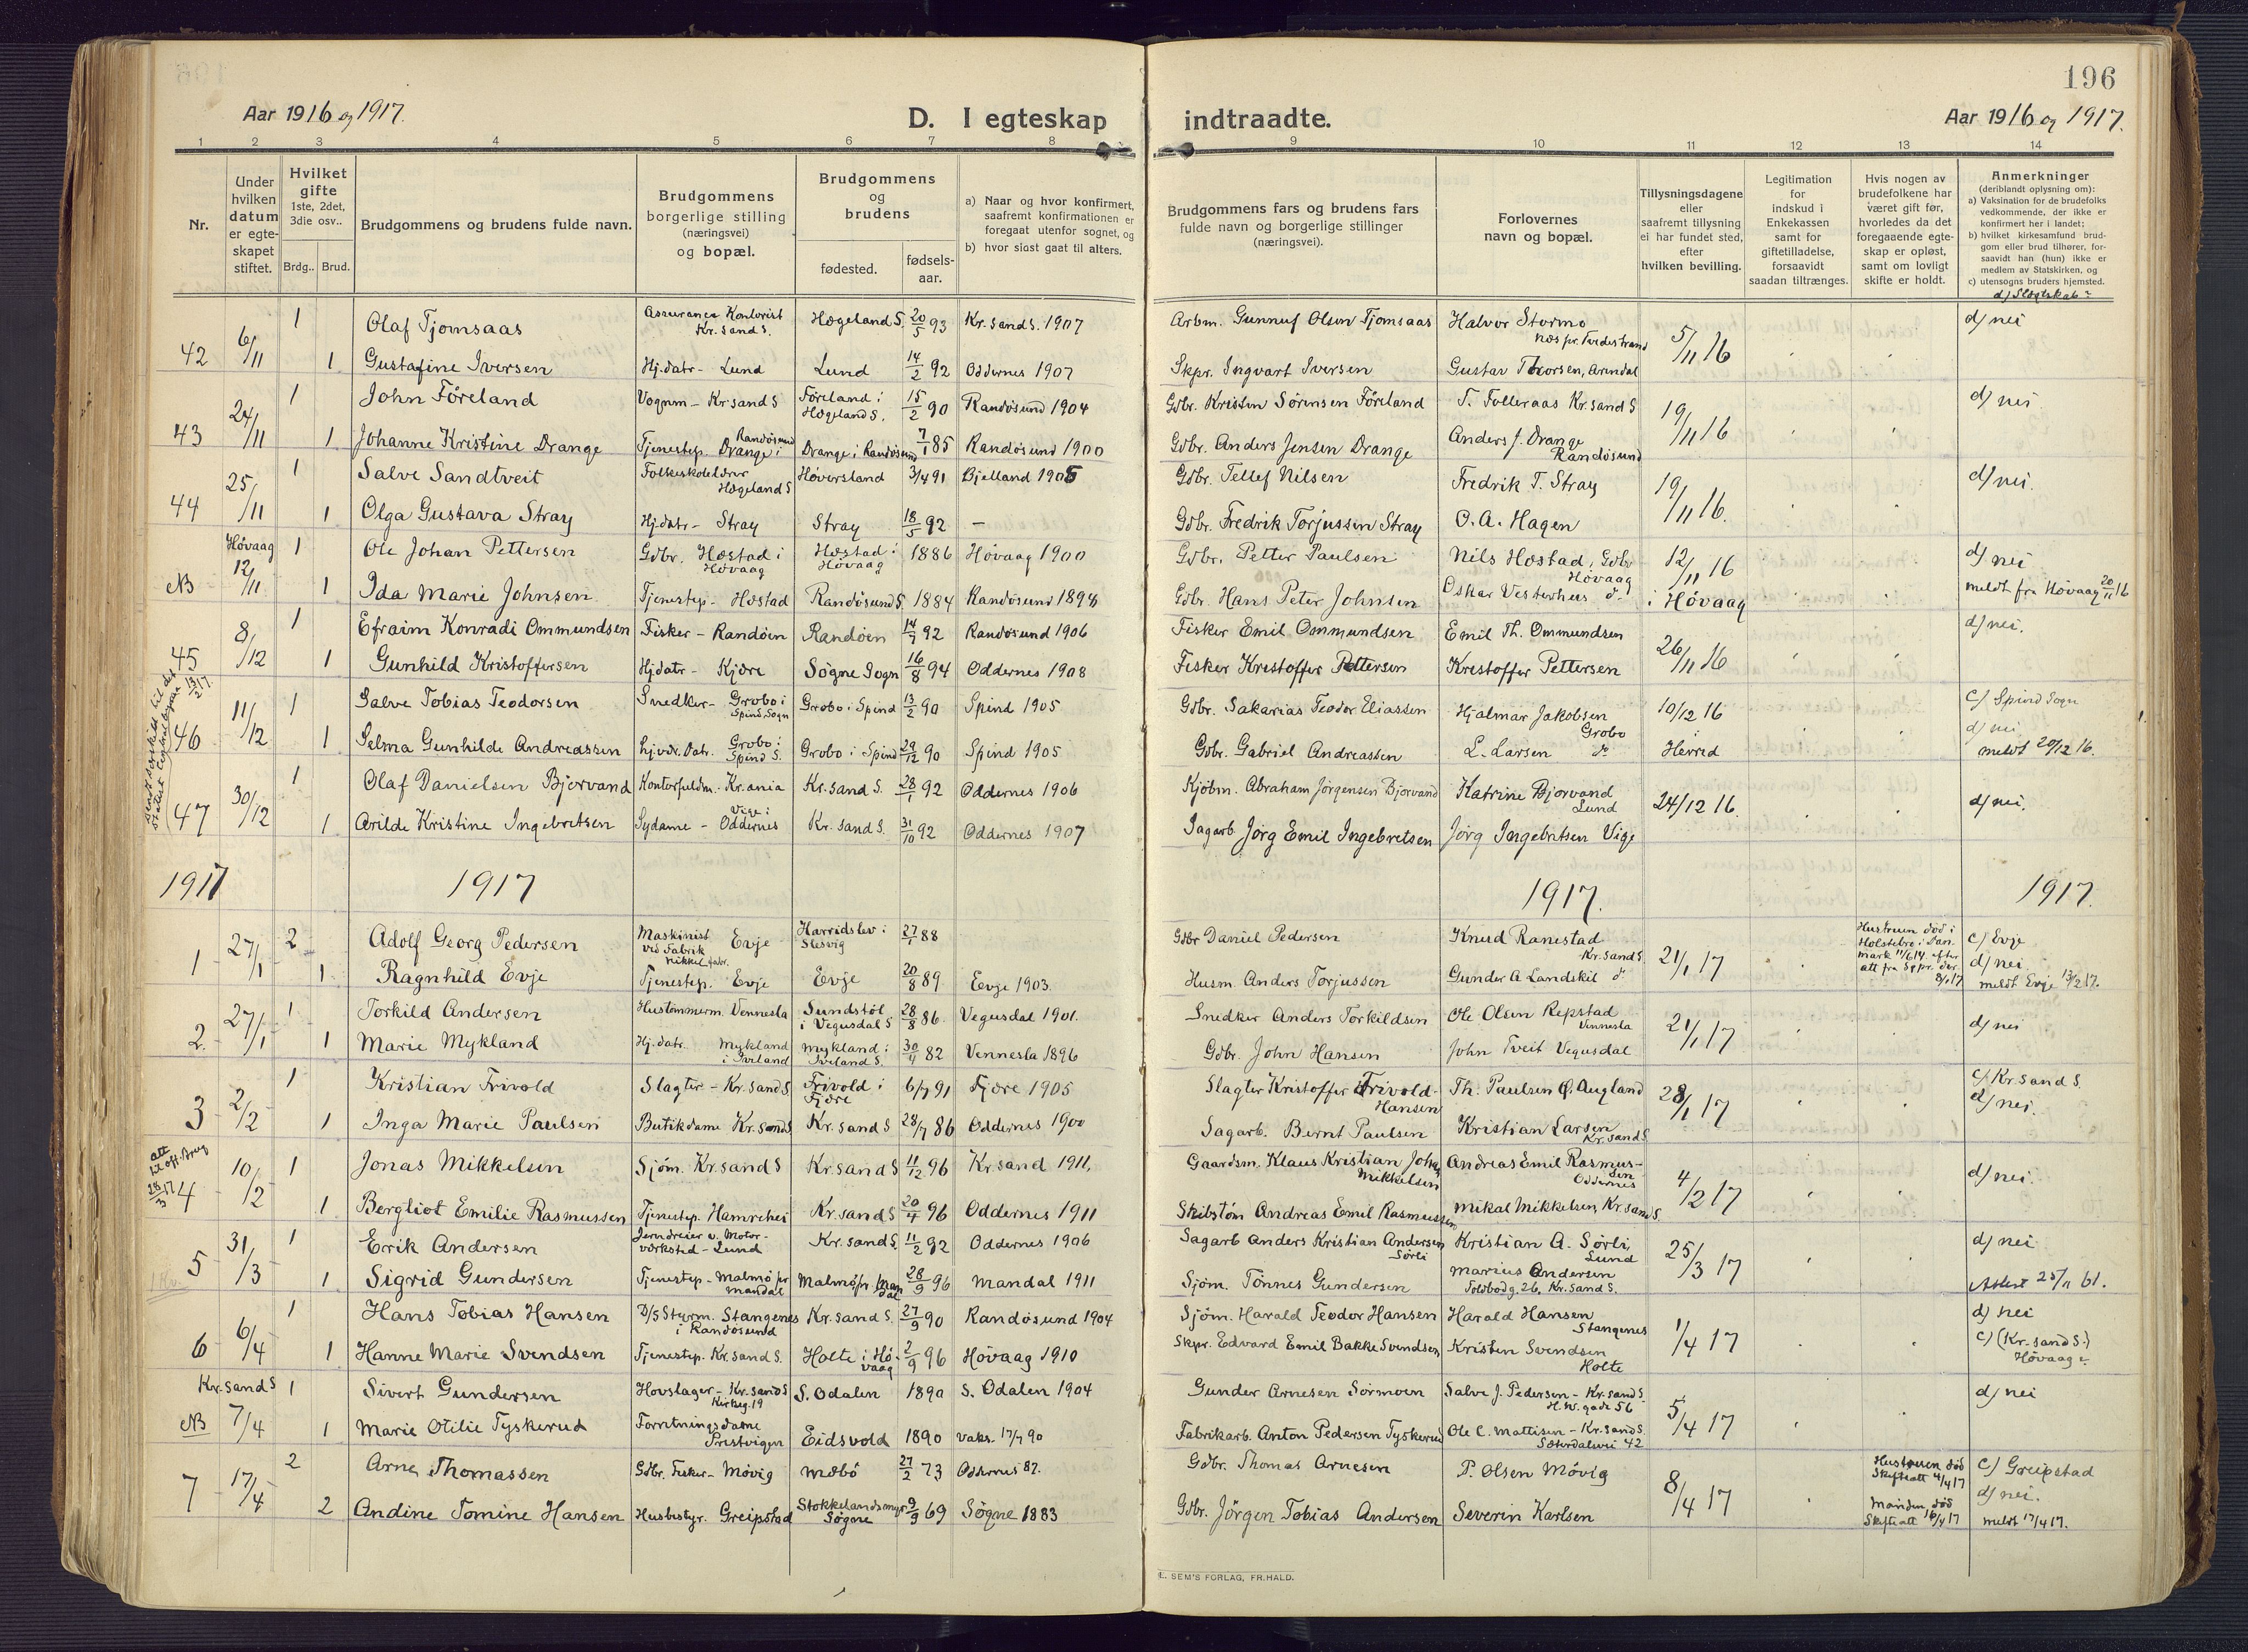 196
Aar 1916 og 1917.
D. I egteskap indtraadte.
Aar 1916 og 1917.
1 2 3 4 5 6 7 8 9 10 11 12 13 14
Nr.
Under hvilken datum er egteskapet stiftet.
Hvilket gifte 1ste, 2det, 3die osv..
Brdg.. Brud.
Brudgommens og brudens fulde navn.
Brudgommens borgerlige stilling (næringsvei) og bopæl.
Brudgommens og brudens
fødested. fødselsaar.
a) Naar og hvor konfirmert, saafremt konfirmationen er foregaat utenfor sognet, og
b) hvor sidst gaat til alters.
Brudgommens fars og brudens fars fulde navn og borgerlige stillinger (næringsvei).
Forlovernes navn og bopæl.
Tillysningsdagene eller saafremt tillysning ei har fundet sted, efter hvilken bevilling.
Legitimation for indskud i Enkekassen samt for giftetilladelse, forsaavidt saadan tiltrænges.
Hvis nogen av brudefolkene har været gift før, hvorledes da det foregaaende egteskap er opløst, samt om lovligt skifte er holdt.
Anmerkninger (deriblandt oplysning om):
a) Vaksination for de brudefolks vedkommende, der ikke er konfirmert her i landet;
b) hvilket kirkesamfund brudgom eller brud tilhører, forsaavidt han (hun) ikke er medlem av Statskirken, og
c) utensogns bruders hjemsted.
d) Slegtskab?
42 6/11 1 Olaf Tjomsaas Assurance Kontorist Kr.sand S. Hægeland S. 20/5 93 Kr.sand S. 1907 Arbm. Gunnuf Olsen Tjomsaas Halvor Stormo Næs pr. Tvedestrand 5/11 16 d) nei
1 Gustafine Iversen Hj.datr - Lund Lund 14/2 92 Oddernes 1907 Skpr. Ingvart Iversen Gustav Thorsen, Arendal
43 24/11 1 John Föreland Vognm - Kr.sand S Föreland i Hægeland S. 15/2 90 Randösund 1904 Gdbr. Kristen Sörensen Föreland T. Folleraas Kr.sand S 19/11 16 d) nei
1 Johanne Kristine Drange Tjenestep. Drange i Randösund Drange i Randösund 7/1 85 Randösund 1900 Gdbr. Anders Jensen Drange Anders J. Drange Randösund
44 25/11 1 Salve Sandtveit Folkeskolelærer Hægeland S Höversland 3/4 91 Bjelland 1905 Gdbr. Tellef Nilsen Fredrik T. Stray 19/11 16. d) nei.
1 Olga Gustava Stray Hj.datr - Stray Stray 18/5 92 - Gdbr. Fredrik Torjussen Stray O. A. Hagen
NB Hövaag 12/11 1 Ole Johan Pettersen Gdbr. Hæstad i Hövaag Hæstad i Hövaag 1886 Hövaag 1900 Gdbr. Petter Paulsen Nils Hæstad, Gdbr Hövaag 12/11 16 i Hövaag d) nei
1 Ida Marie Johnsen Tjenestep - Hæstad Randösund S. 1884 Randösund 1898 Gdbr. Hans Peter Johnsen Oskar Vesterhus do meldt fra Hövaag 20/11 16
45 8/12 1 Efraim Konradi Ommundsen Fisker - Randöen Randöen 14/7 92 Randösund 1906 Fisker Emil Ommundsen Emil Th. Ommundsen 26/11 16 d) nei.
1 Gunhild Kristoffersen Hj.datr - Kjære Sögne Sogn 16/8 94 Oddernes 1908 Fisker Kristoffer Pettersen Kristoffer Pettersen
46 11/12 1 Salve Tobias Teodorsen Snedker - Grobo i Spind Sogn Grobo i Spind 13/2 90 Spind 1905 Gdbr. Sakarias Teodor Eliassen Hjalmar Jakobsen Grobo 10/12 16 Herred c) Spind Sogn
1 Selma Gunhilde Andreassen hjvær. Datr. Grobo i Spind S. Grobo i Spind 29/12 90 Spind 1905 Gdbr. Gabriel Andreassen L. Larsen do d) nei meldt 20/12 16.
47 30/12 1 Olaf Danielsen Bjorvand Kontorfuldm. - Kr.ania Kr.sand S. 28/1 92 Oddernes 1906 Kjöbm. Abraham Jörgensen Bjorvand Katrine Bjorvand Lund 24/12 16. d) nei.
1 Arilde Kristine Ingebretsen Sydame - Vige i Oddernes Kr.sand S. 31/10 92 Oddernes 1907 Sagarb. Jörg Emil Ingebretsen Jörg Ingebretsen Vige
1917 1917 1917. 1917.
1 27/1 2 Adolf Georg Pedersen Maskinist ved Fabrik Nikkel fabr. Evje Harridslev i Slesvig 27/1 88 Gdbr Daniel Pedersen Knud Ranestad Kr.sand S 21/1 17 Hustruen död i Holstebro i Danmark 11/6 14 efter att fra Sgpr. der 8/1 17 c) Evje
1 Ragnhild Evje Tjenestep. Evje Evje 20/8 89 Evje 1903. Husm. Anders Torjussen Gunder A Landskil do d) nei meldt Evje 13/2 17.
2. 27/1 1 Torkild Andersen Hustömmerm. Vennesla Sundstöl i Vegusdal S 28/8 86. Vegusdal 1901. Snedker Anders Torkildsen Ole Olsen Repstad Vennesla 21/1 17 d) nei
1 Marie Mykland Hj.datr. Mykland i Iveland Mykland i Iveland S. 30/4 82 Vennesla 1896 Gdbr. John Hansen John Tveit Vegusdal
3 2/2 1 Kristian Frivold Slagter - Kr.sand S. Frivold i Fjære 6/7 91 Fjære 1905 Slagter Kristoffer Frivold Hansen Th. Paulsen Augland 28/1 17 c) Kr.sand S.
1 Inga Marie Paulsen Butikdame Kr.sand S Kr.sand S 28/7 86 Oddernes 1900 Sagarb. Bernt Paulsen Kristian Larsen Kr.sand S d) nei.
4 10/2 1 Jonas Mikkelsen Sjöm. Kr.sand S Kr.sand S 11/12 96 Kr.sand 1911, Gaardsm. Klaus Kristian Johan Mikkelsen Andreas Emil Rasmussen Oddernes 4/2 17 d) nei.
1 Bergliot Emilie Rasmussen Tjenestep. Hamrehei Kr.sand S 20/4 96 Oddernes 1911 Skibstöm Andreas Emil Rasmussen Mikal Mikkelsen, Kr.sand S.
5 31/3 1 Erik Andersen Jerndreier v. Motorværksted - Lund Kr.sand S. 11/2 92 Oddernes 1906 Sagarb Anders Kristian Andersen Sörli Kristian A. Sörli, Lund 25/3 17 d) nei
1 Sigrid Gundersen Tjenestep - Malmö pr Mandal Malmö pr Mandal 28/9 96 Mandal 1911 Sjöm. Tönnes Gundersen Marius Andersen Toldbodg. 26, Kr.sand S. Attest 25/11 61.
6 6/4 1 Hans Tobias Hansen D/S Styrm. Stangenes i Randösund Kr.sand S. 27/9 90 Randösund 1904 Sjöm. Harald Teodor Hansen Harald Hansen Stangenes 1/4 17 d) nei
1 Hanne Marie Svendsen Tjenestep. Kr.sand S. Holte i Hövaag 2/9 96 Hövaag 1910 Skpr. Edvard Emil Bakke Svendsen Kristen Svendsen Holte c) (Kr.sand S.) Hövaag
NB Kr.sand S 7/4 1 Sivert Gundersen Hovslager - Kr.sand S Kirkeg. 19 S. Odalen 1890 S. Odalen 1904 Gunder Arnesen Sormoen Salve J. Pedersen - Kr.sand S. H.W. gade 56 5/4 17 d) nei
1 Marie Otilie Tyskerud Forretningsdame Prestvigen Eidsvold 1890 Vaks. 17/7 90 Fabrikarb. Anton Pedersen Tyskerud Ole C. Mattisen - Kr.sand S. Sæterdalsvei 42
7 17/4 2 Arne Thomassen Gdbr. Fisker - Mövig Mæbö 27/2 73 Oddernes 87. Gdbr. Thomas Arnesen P. Olsen Mövig 8/4 17 Hustruen död Skifteatt 4/4 17 c) Greipstad
2 Andine Tomine Hansen Husbestyr. Greipstad Stokkelandsmyr Sögne 9/9 69 Sögne 1883 Gdbr. Jörgen Tobias Andersen Severin Karlsen Manden död Skifteatt 16/4 17 d) nei. meldt 17/4 17.
E. SEM'S FORLAG, FR.HALD.